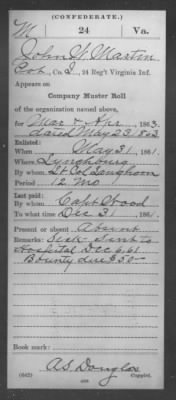 (CONFEDERATE.)
M 24 Va.
John W. Martin
Co. I, 24 Reg't Virginia Inf.
Appears on
Company Muster Roll
of the organization named above,
for Mar & Apr, 1863.
dated May 23, 1863
Enlisted:
When May 31, 1861.
Where Lynchburg
By whom Lt Col Langhorn
Period 12 Mo
Last paid:
By whom Capt Wood
To what time Dec 31, 1861.
Present or absent Absent
Remarks: Sick Sent to
Hospital Dec 6, 61
Bounty due $50-
Book mark:
A S Douglas
(642) Copyist.